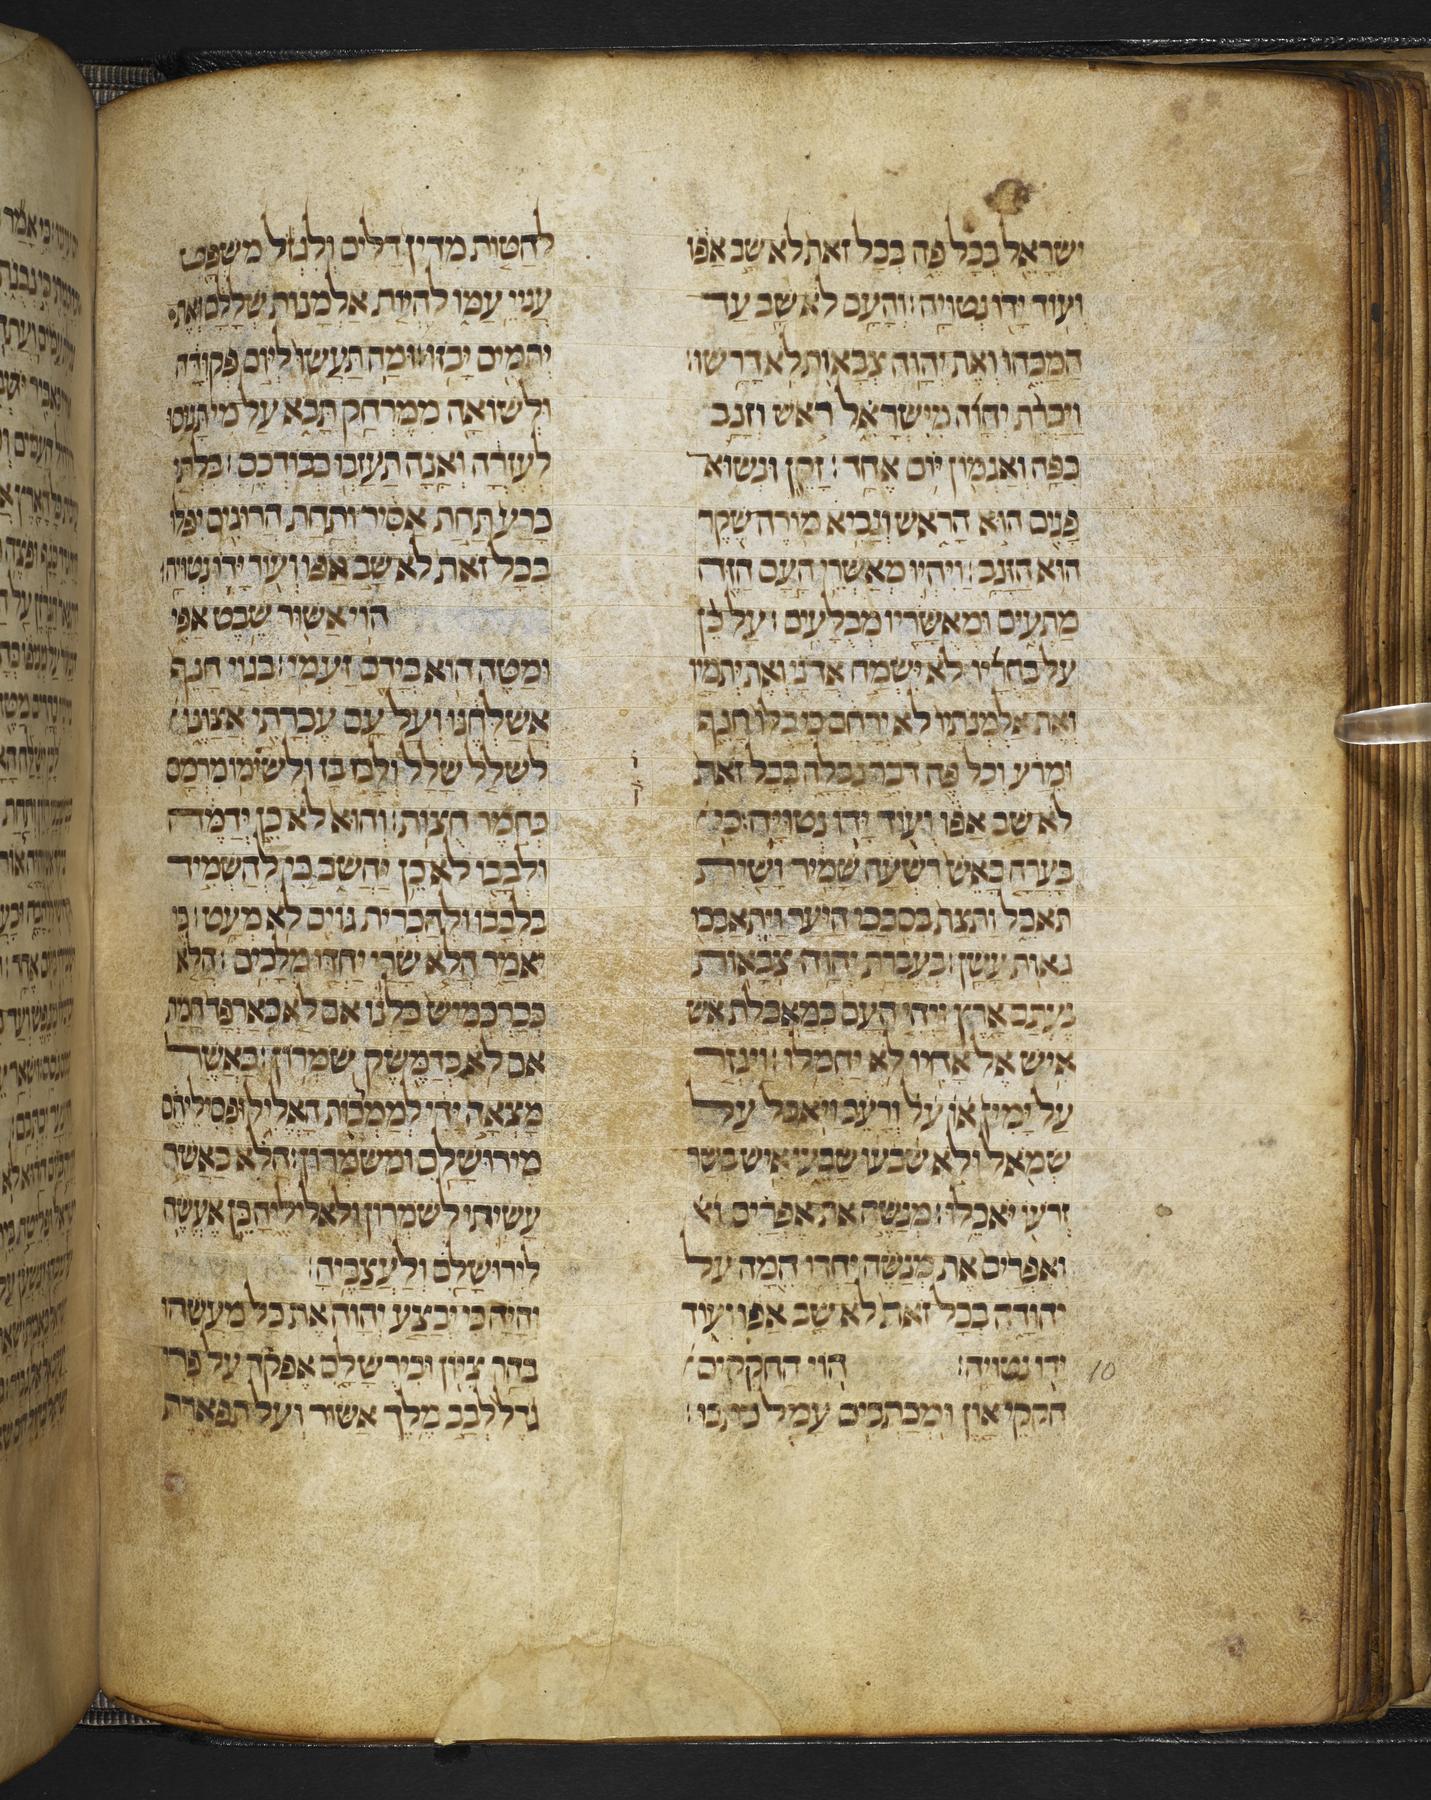 ישראל בכל פה בכל זאת לא שב אפו
ועוד ידו נטויה׃ והעם לא שב עד
המכהו ואת יהוה צבאות לא דרשו׃
ויכרת יהוה מישראל ראש וזנב
כפה ואגמון יום אחד׃ זקן ונשוא
פנים הוא הראש ונביא מורה שקר
הוא הזנב׃ ויהיו מאשרי העם הזה
מתעים ומאשריו מבלעים׃ על כן
על בחוריו לא ישמח אדני ואת יתמיו
ואת אלמנתיו לא ירחם כי כלו חנף
ומרע וכל פה דבר נבלה בכל זאת
לא שב אפו ועוד ידו נטויה׃ כי
בערה כאש רשעה שמיר ושית
תאכל ותצת בסבכי היער ויתאבכו
גאות עשן׃ בעברת יהוה צבאות
נעתם ארץ ויהי העם כמאכלת אש
איש אל אחיו לא יחמלו׃ ויגזר
על ימין ורעב ויאכל על
שמאול ולא שבעו איש בשר
זרעו יאכלו׃ מנשה את אפרים
ואפרים את מנשה יחדו המה על
יהודה בכל זאת לא שב אפו ועוד
ידו נטויה׃ הוי החקקים
10
חקקי און ומכתבים עמל כתבו׃
להטות מדין דלים ולגזל משפט
עניי עמו להיות אלמנות שללם ואת
יתמים יבזו׃ ומה תעשו ליום פקודה
ולשואה ממרחק תבא על מי תנוסו
לעזרה ואנה תעזבו כבודכם׃ בלתי
כרע תחת אסיר ותחת הרוגים יפלו
בכל זאת לא שב אפו ועוד ידו נטויה׃
הוי אשור שבט אפי
ומטה הוא בידם זעמי׃ בגוי חנף
אשלחנו ועל עם עברתי אצונו
לשלל שלל ולבז בז ולשימו מרמס
ו
ק
כחמר חוצות׃ והוא לא כן ידמה
ולבבו לא כן יחשב כי להשמיד
בלבבו ולהכרית גוים לא מעט׃ כי
יאמר הלא שרי יחדו מלכים׃ הלא
ככרכמיש כלנו אם לא כארפד חמת
אם לא כדמשק שמרון׃ כאשר
מצאה ידי לממלכות האליל ופסיליהם
מירושלם ומשמרון׃ הלא כאשר
עשיתי לשמרון ולאליליה כן אעשה
לירושלם ולעצביה׃
והיה כי יבצע יהוה את כל מעשהו
בהר ציון ובירושלם אפקד על פרי
גדל לבב מלך אשור ועל תפארת